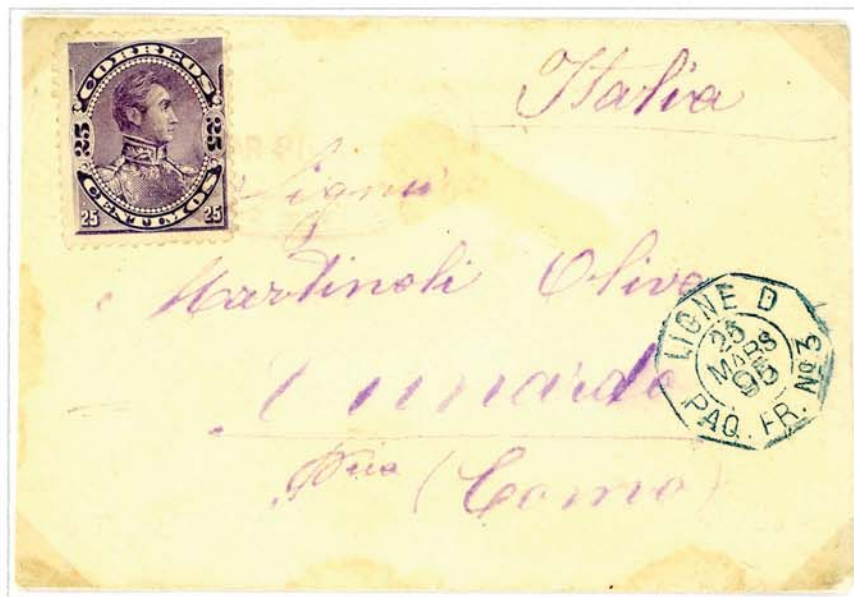 CORREOS
25 25
CENTIMOS
25 25
Italia
Signor
Martinoli Olivo
Cunardo
(Como)
LIGNE D
25
MARS
95
PAQ. FR. Nº 3